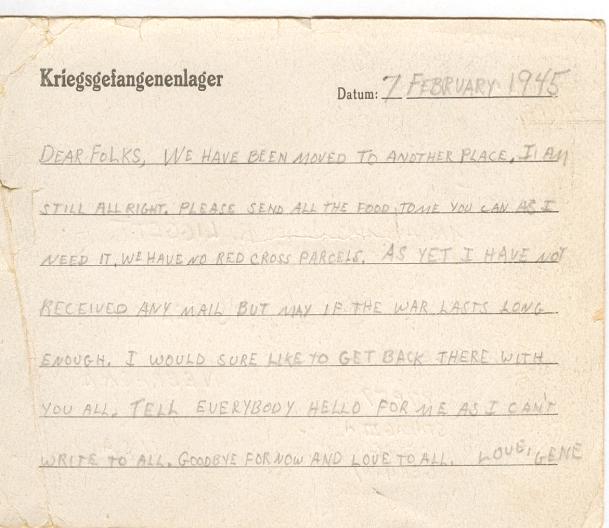 Kriegsgefangenenlager
Datum: 7 FEBRUARY 1945
DEAR FOLKS, WE HAVE BEEN MOVED TO ANOTHER PLACE. I AM
STILL ALL RIGHT. PLEASE SEND ALL THE FOOD TO ME YOU CAN AS I
NEED IT. WE HAVE NO RED CROSS PARCELS. AS YET I HAVE NOT
RECEIVED ANY MAIL BUT MAY IF THE WAR LASTS LONG
ENOUGH. I WOULD SURE LIKE TO GET BACK THERE WITH
YOU ALL. TELL EVERYBODY HELLO FOR ME AS I CAN'T
WRITE TO ALL. GOODBYE FOR NOW AND LOVE TO ALL. LOVE, GENE